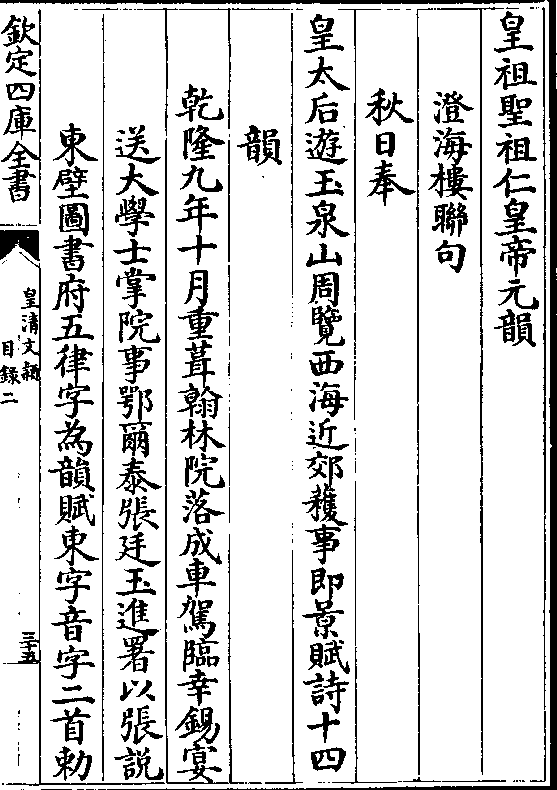 皇祖聖祖仁皇帝元韻
澄海樓聯句
秋日奉
皇太后遊玉泉山周覽西海近郊穫事即景賦詩十四
韻
乾隆九年十月重葺翰林院落成車駕臨幸錫宴
送大學士掌院事鄂爾泰張廷玉進署以張説
東壁圖書府五律字為韻賦東字音字二首勅
欽定四庫全書
皇清文穎
目録二
三十五